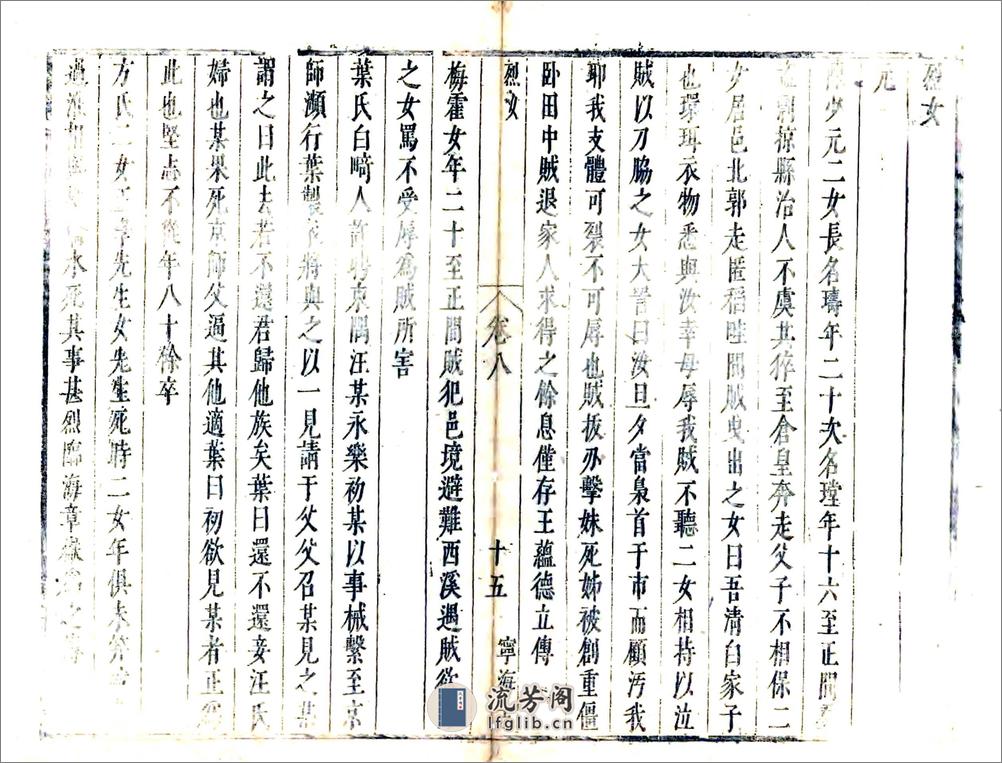 烈女
元
少元二女長名璹年二十次名瑝年十六至正間
掠縣治人不虞其猝至倉皇奔走父子不相保二
女居邑北郭走匿稻畦間賊曳出之女曰吾清白家子
也環珥衣物悉與汝幸毋辱我賊不聽二女相持以泣
賊以刀脇之女大詈曰汝旦夕當梟首于市而顧汚我
耶我支體可裂不可辱也賊拔刃擊妹死姊被創重僵
卧田中賊退家人求得之餘息僅存王蘊德立傳
烈女
卷八
十五
寧海
梅霍女年二十至正間賊犯邑境避難西溪遇賊欲
之女罵不受辱為賊所害
葉氏白崎人許聘東隅汪某永樂初某以事械繫至京
師瀕行葉製衣將與之以一見請于父父召某見之某
謂之曰此去若不還君歸他族矣葉曰還不還妾汪氏
婦也某果死京師父逼其他適葉曰初欲見某者正為
此也堅志不從年八十餘卒
方氏二女正學先生女先生死時二女年俱未笄
水死其事甚烈臨海章
流芳阁
lfglib.cn